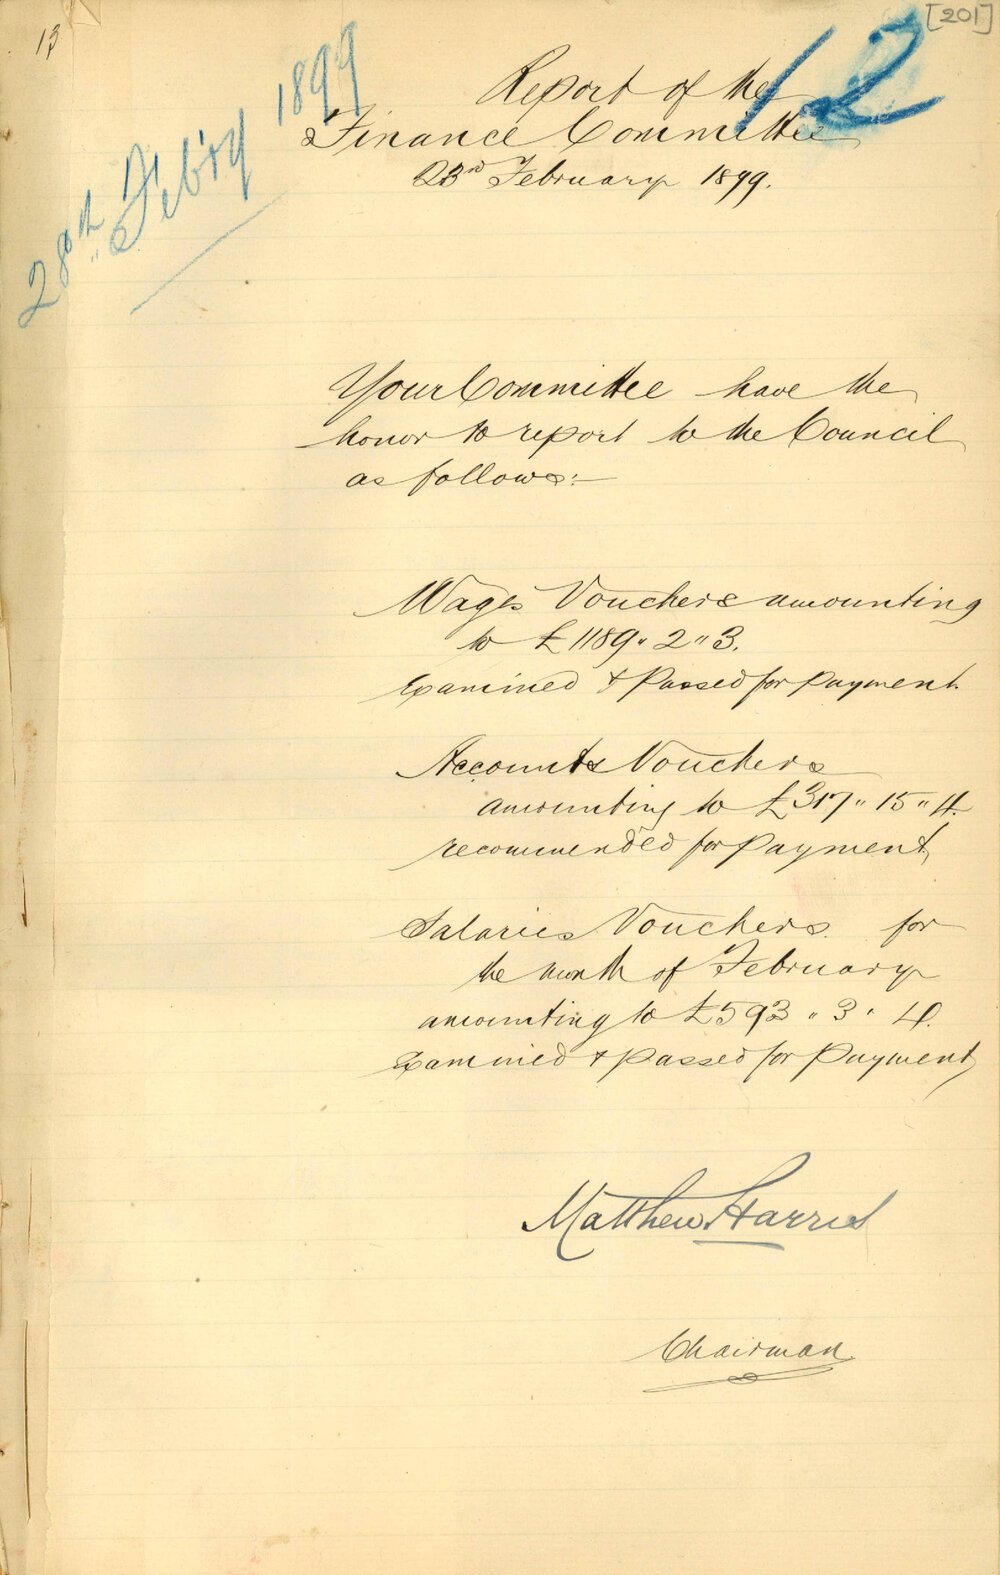 13
[201]
12
28th Feb'ry 1899
Report of the
Finance Committee
23rd February 1899.
Your Committee have the
honor to report to the Council
as follows:—
Wages Vouchers amounting
to £1189 " 2 " 3.
Examined & Passed for payment.
Accounts Vouchers
amounting to £317 " 15 " 4.
recommended for payment,
Salaries Vouchers for
the month of February
amounting to £593 " 3 " 4.
Examined & passed for payment,
Matthew Harris
Chairman